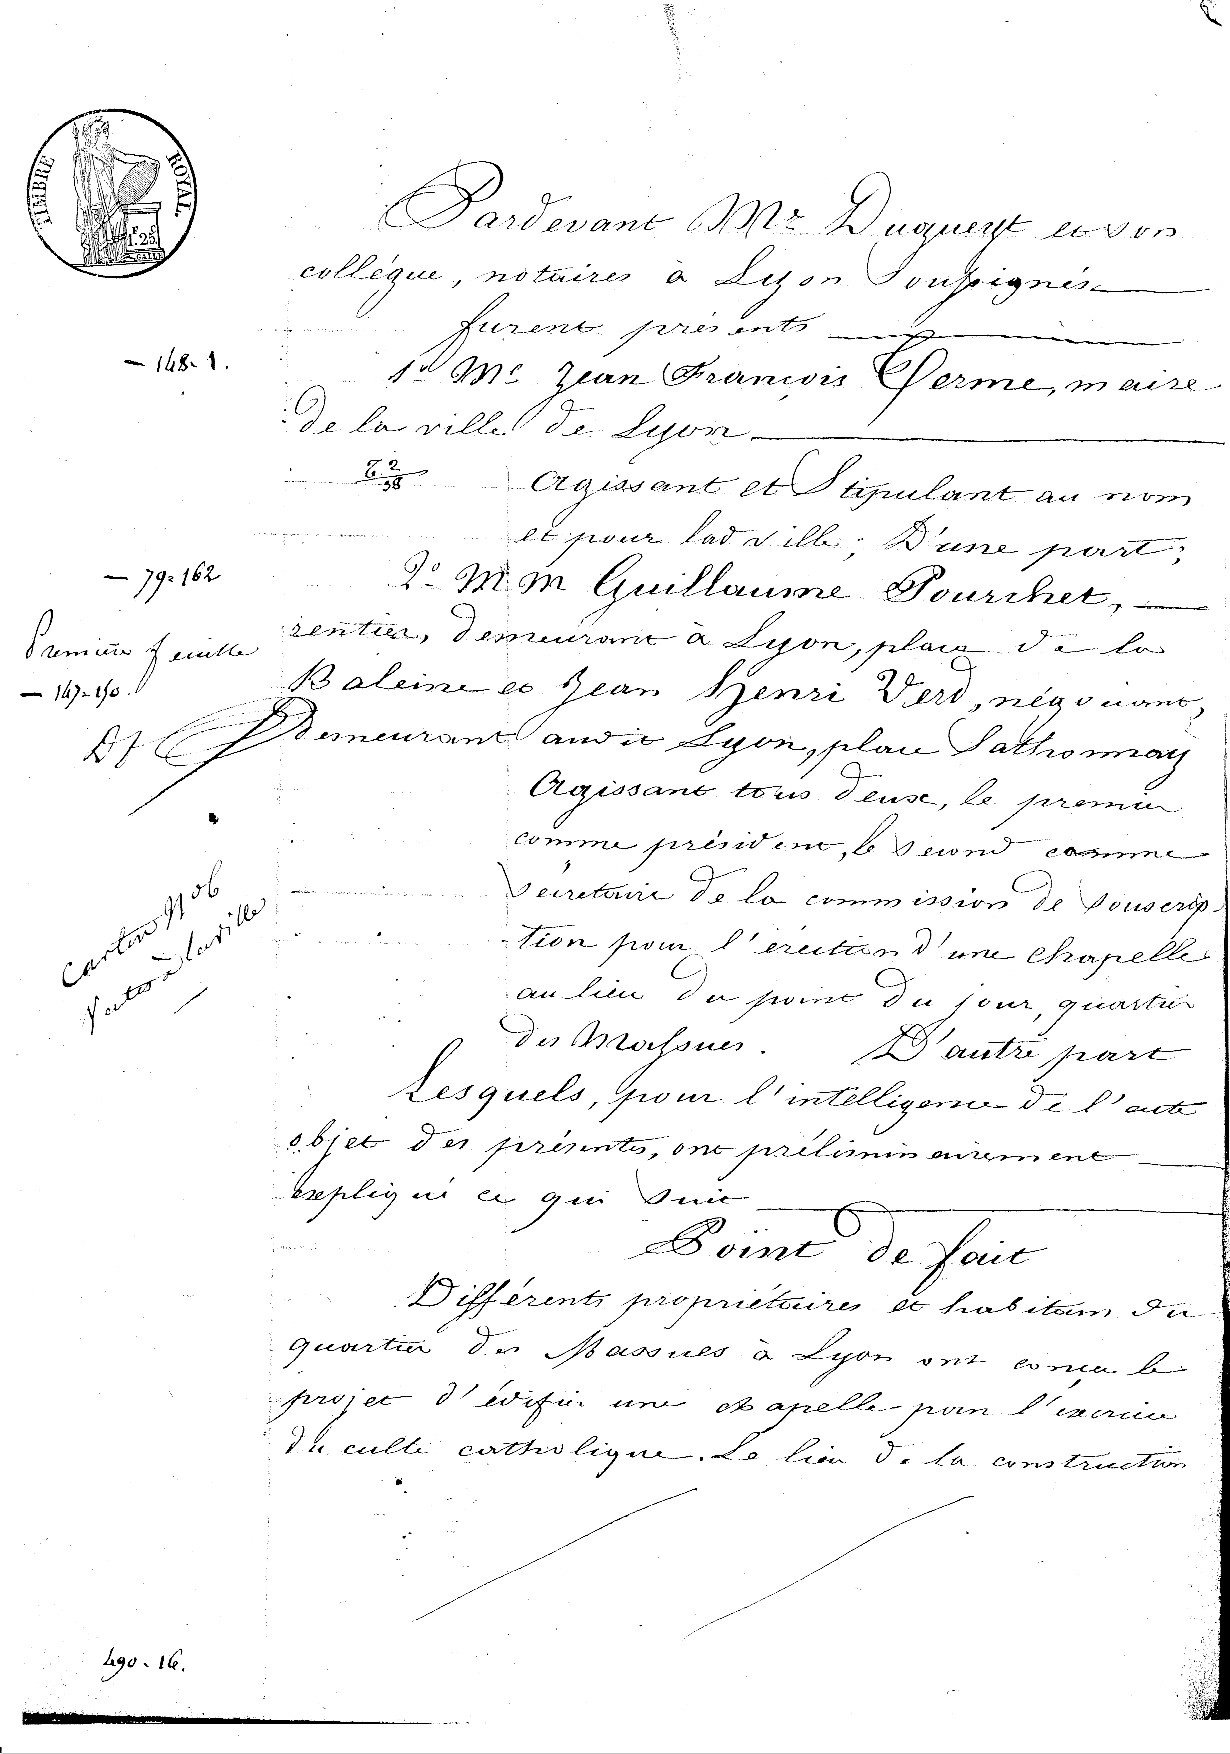 TIMBRE ROYAL
1f. 25
Pardevant Mr Duqueyt et son
collégue, notaires à Lyon Soussignés
furent présents
— 148-1.
1° Mr Jean François Terme, maire
de la ville de Lyon
Agissant et Stipulant au nom
et pour lad ville; D'une part;
— 79-162
2° M M Guillaume Pourchet,
Première feuille
rentier, demeurant à Lyon, place de la
— 147-150.
Baleine et Jean Henri Verd, négociant,
demeurant audit Lyon, place Sathonnay
Agissant tous deux, le premier
comme président, le second comme
Secrétaire de la commission de souscrip-
tion pour l'érection d'une chapelle
au lieu du point du jour, quartier
des Massues. D'autre part
Lesquels, pour l'intelligence de l'acte
objet des présentes, ont préliminairement
expliqué ce qui suit
Point de fait
Différents propriétaires et habitans du
quartier des Massues à Lyon ont conçu le
projet d'édifier une chapelle pour l'exercice
du culte catholique. Le lieu de la construction
490-16.